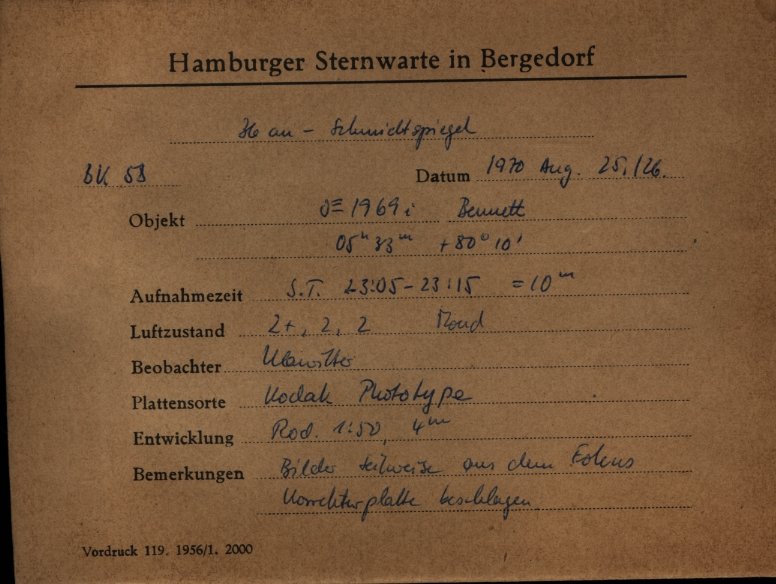 Hamburger Sternwarte in Bergedorf
36 cm - Schmidtspiegel
BK 58 Datum 1970 Aug. 25./26.
Objekt 1969 i Bennett
05ʰ 33ᵐ +80° 10'
Aufnahmezeit S.T. 23:05 - 23:15 = 10ᵐ
Luftzustand 2+, 2, 2 Mond
Beobachter
Plattensorte Kodak Phototype
Entwicklung Rod. 1:50, 4ᵐ
Bemerkungen Bilder teilweise aus dem Fokus
Korrektorplatte beschlagen
Vordruck 119. 1956/1. 2000